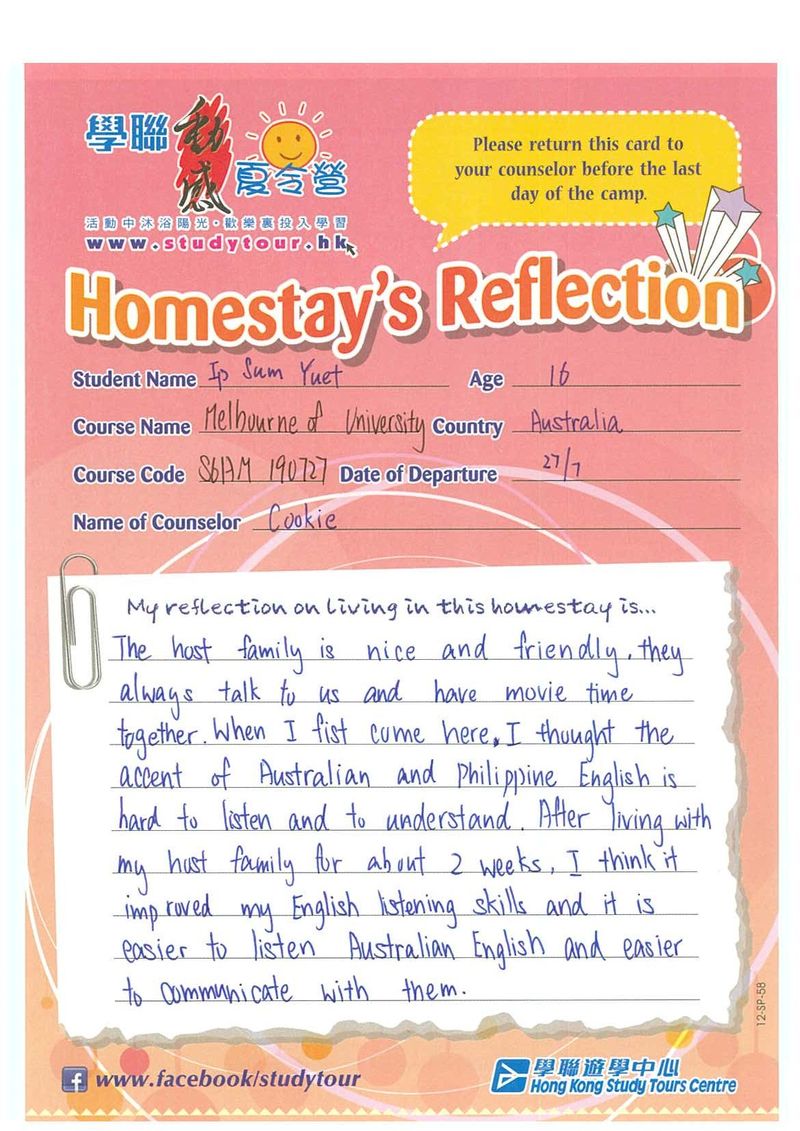 學聯動感夏令營
活動中沐浴陽光・歡樂裏投入學習
www.studytour.hk
Please return this card to
your counselor before the last
day of the camp.
Homestay's Reflection
Student Name Ip Sum Yuet Age 16
Course Name Melbourne of University Country Australia
Course Code S61AM 190727 Date of Departure 27/7
Name of Counselor Cookie
My reflection on living in this homestay is...
The host family is nice and friendly, they
always talk to us and have movie time
together. When I fist come here, I thought the
accent of Australian and Philippine English is
hard to listen and to understand. After living with
my host family for about 2 weeks, I think it
improved my English listening skills and it is
easier to listen Australian English and easier
to communicate with them.
12-SP-58
www.facebook/studytour
學聯遊學中心
Hong Kong Study Tours Centre